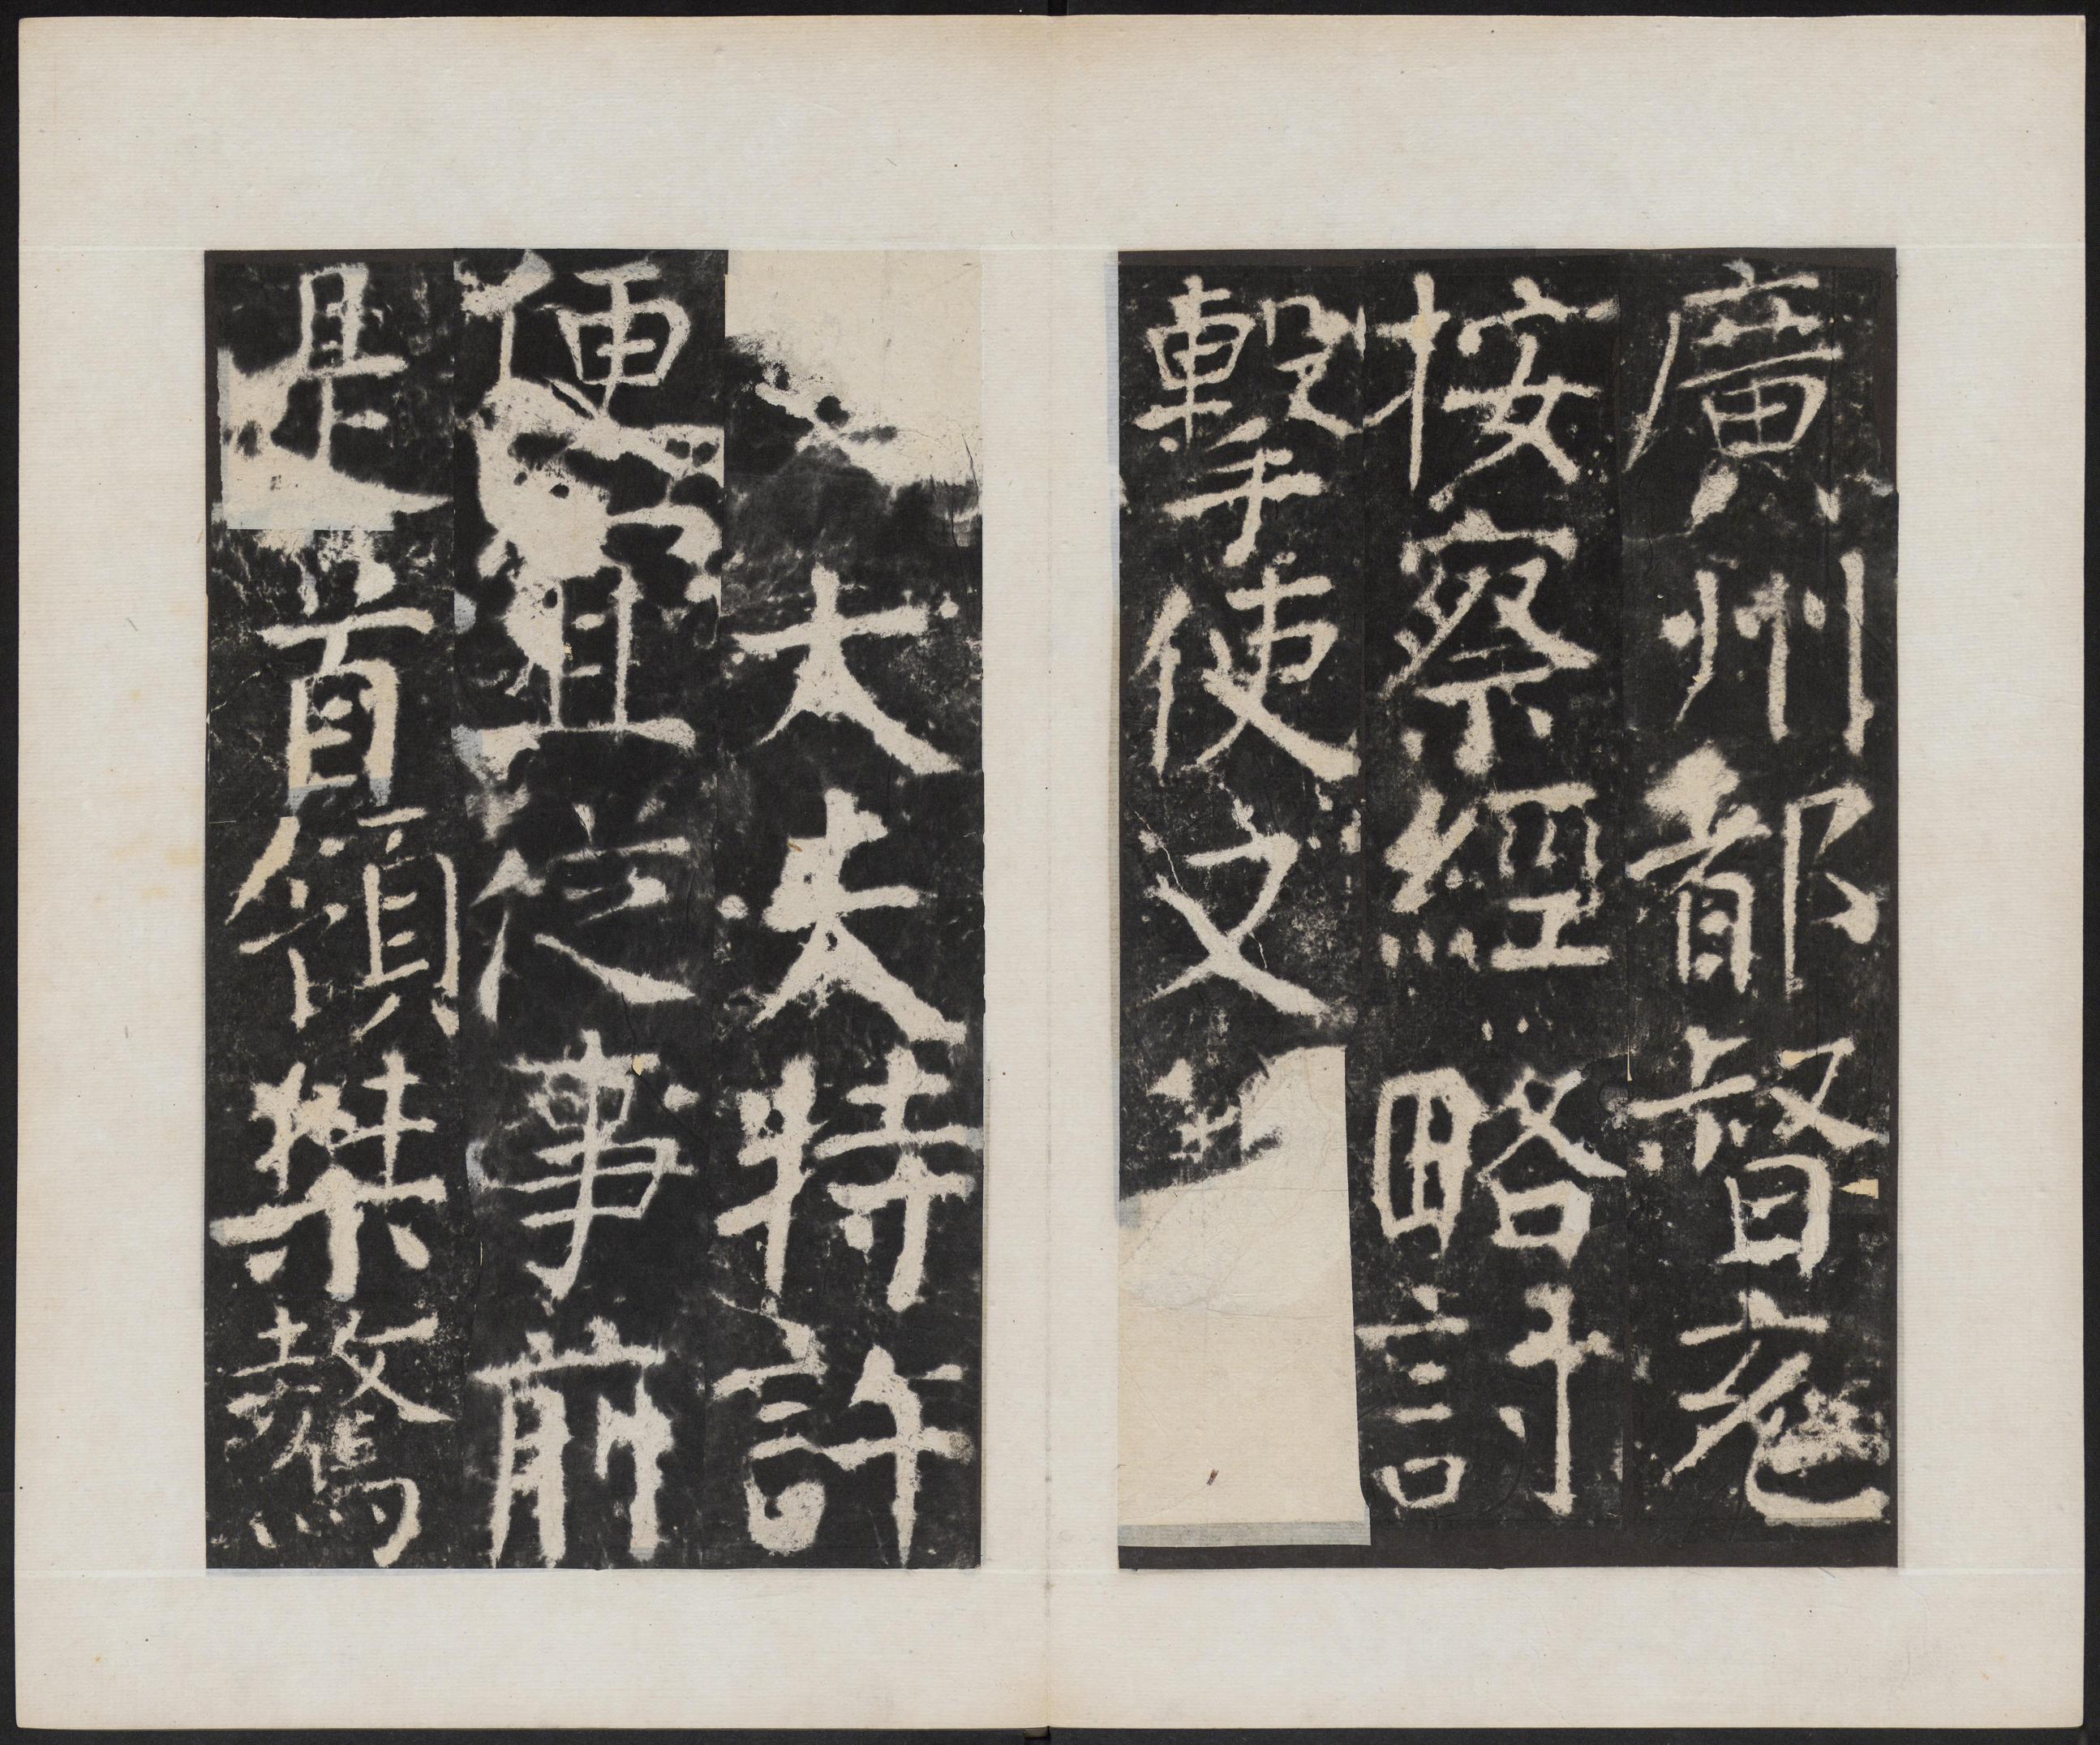 廣州都督充
按察經略討
擊使又
大夫特許
便且從事前
是首領桀驁